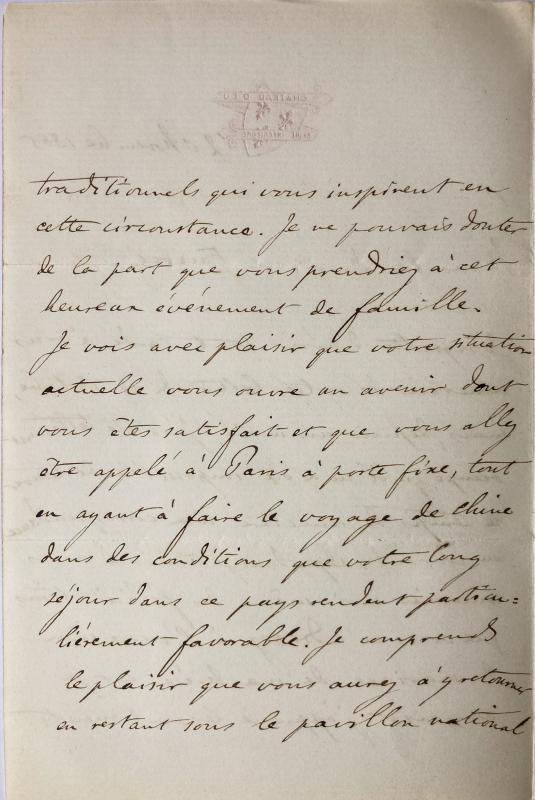 traditionnels qui vous inspirent en
cette circonstance. Je ne pouvais douter
de la part que vous prendriez à cet
heureux événement de famille.
Je vois avec plaisir que votre situation
actuelle vous ouvre un avenir dont
vous êtes satisfait et que vous allez
être appelé à Paris à poste fixe, tout
en ayant à faire le voyage de Chine
dans des conditions que votre long
séjour dans ce pays rendent particu=
lièrement favorable. Je comprends
le plaisir que vous aurez à y retourner
en restant sous le pavillon national